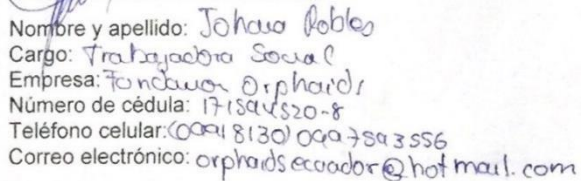 Nombre y apellido: Johana Robles
Cargo: Trabajadora Social
Empresa: Fundacion Orphaids
Número de cédula:
Teléfono celular:
Correo electrónico: orphaidsecuador@hotmail.com